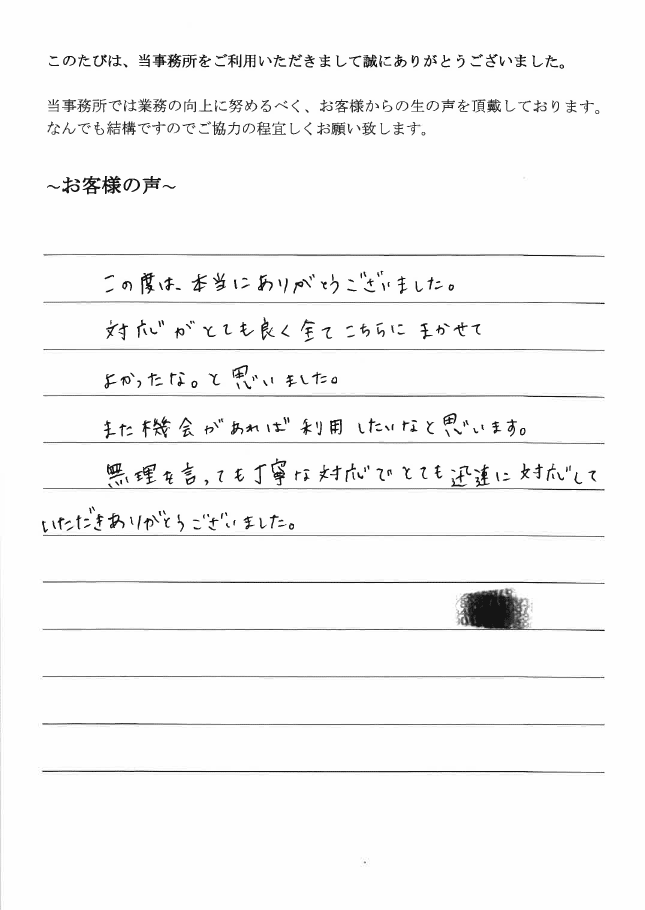 このたびは、当事務所をご利用いただきまして誠にありがとうございました。
当事務所では業務の向上に努めるべく、お客様からの生の声を頂戴しております。
なんでも結構ですのでご協力の程宜しくお願い致します。
～お客様の声～
この度は、本当にありがとうございました。
対応がとても良く全てこちらにまかせて
よかったな。と思いました。
また機会があれば利用したいなと思います。
無理を言っても丁寧な対応でとても迅速に対応して
いただきありがとうございました。